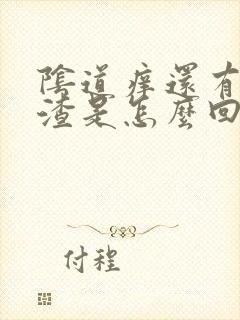 陰道癢還有
渣是怎麼回
付程